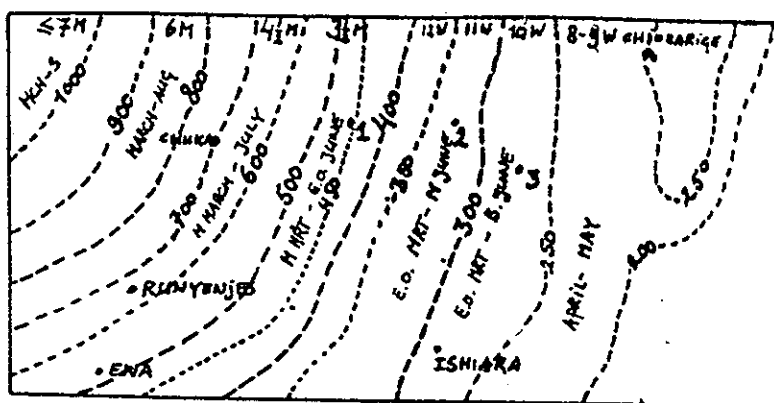 ≤7M 6M 4½M 3½M 12W 11W 10W 8-9W CHIOKARIGE
MCH-S
1000
900
MARCH-AUG
800
CHUKA
700
M MARCH - JULY
600
500
M MRT - E.O. JUNE
450
400
350
E.O. MRT - M JUNE
300
E.O. MRT - B. JUNE
250
APRIL-MAY
200
250
RUNYENJES
ENA
ISHIARA